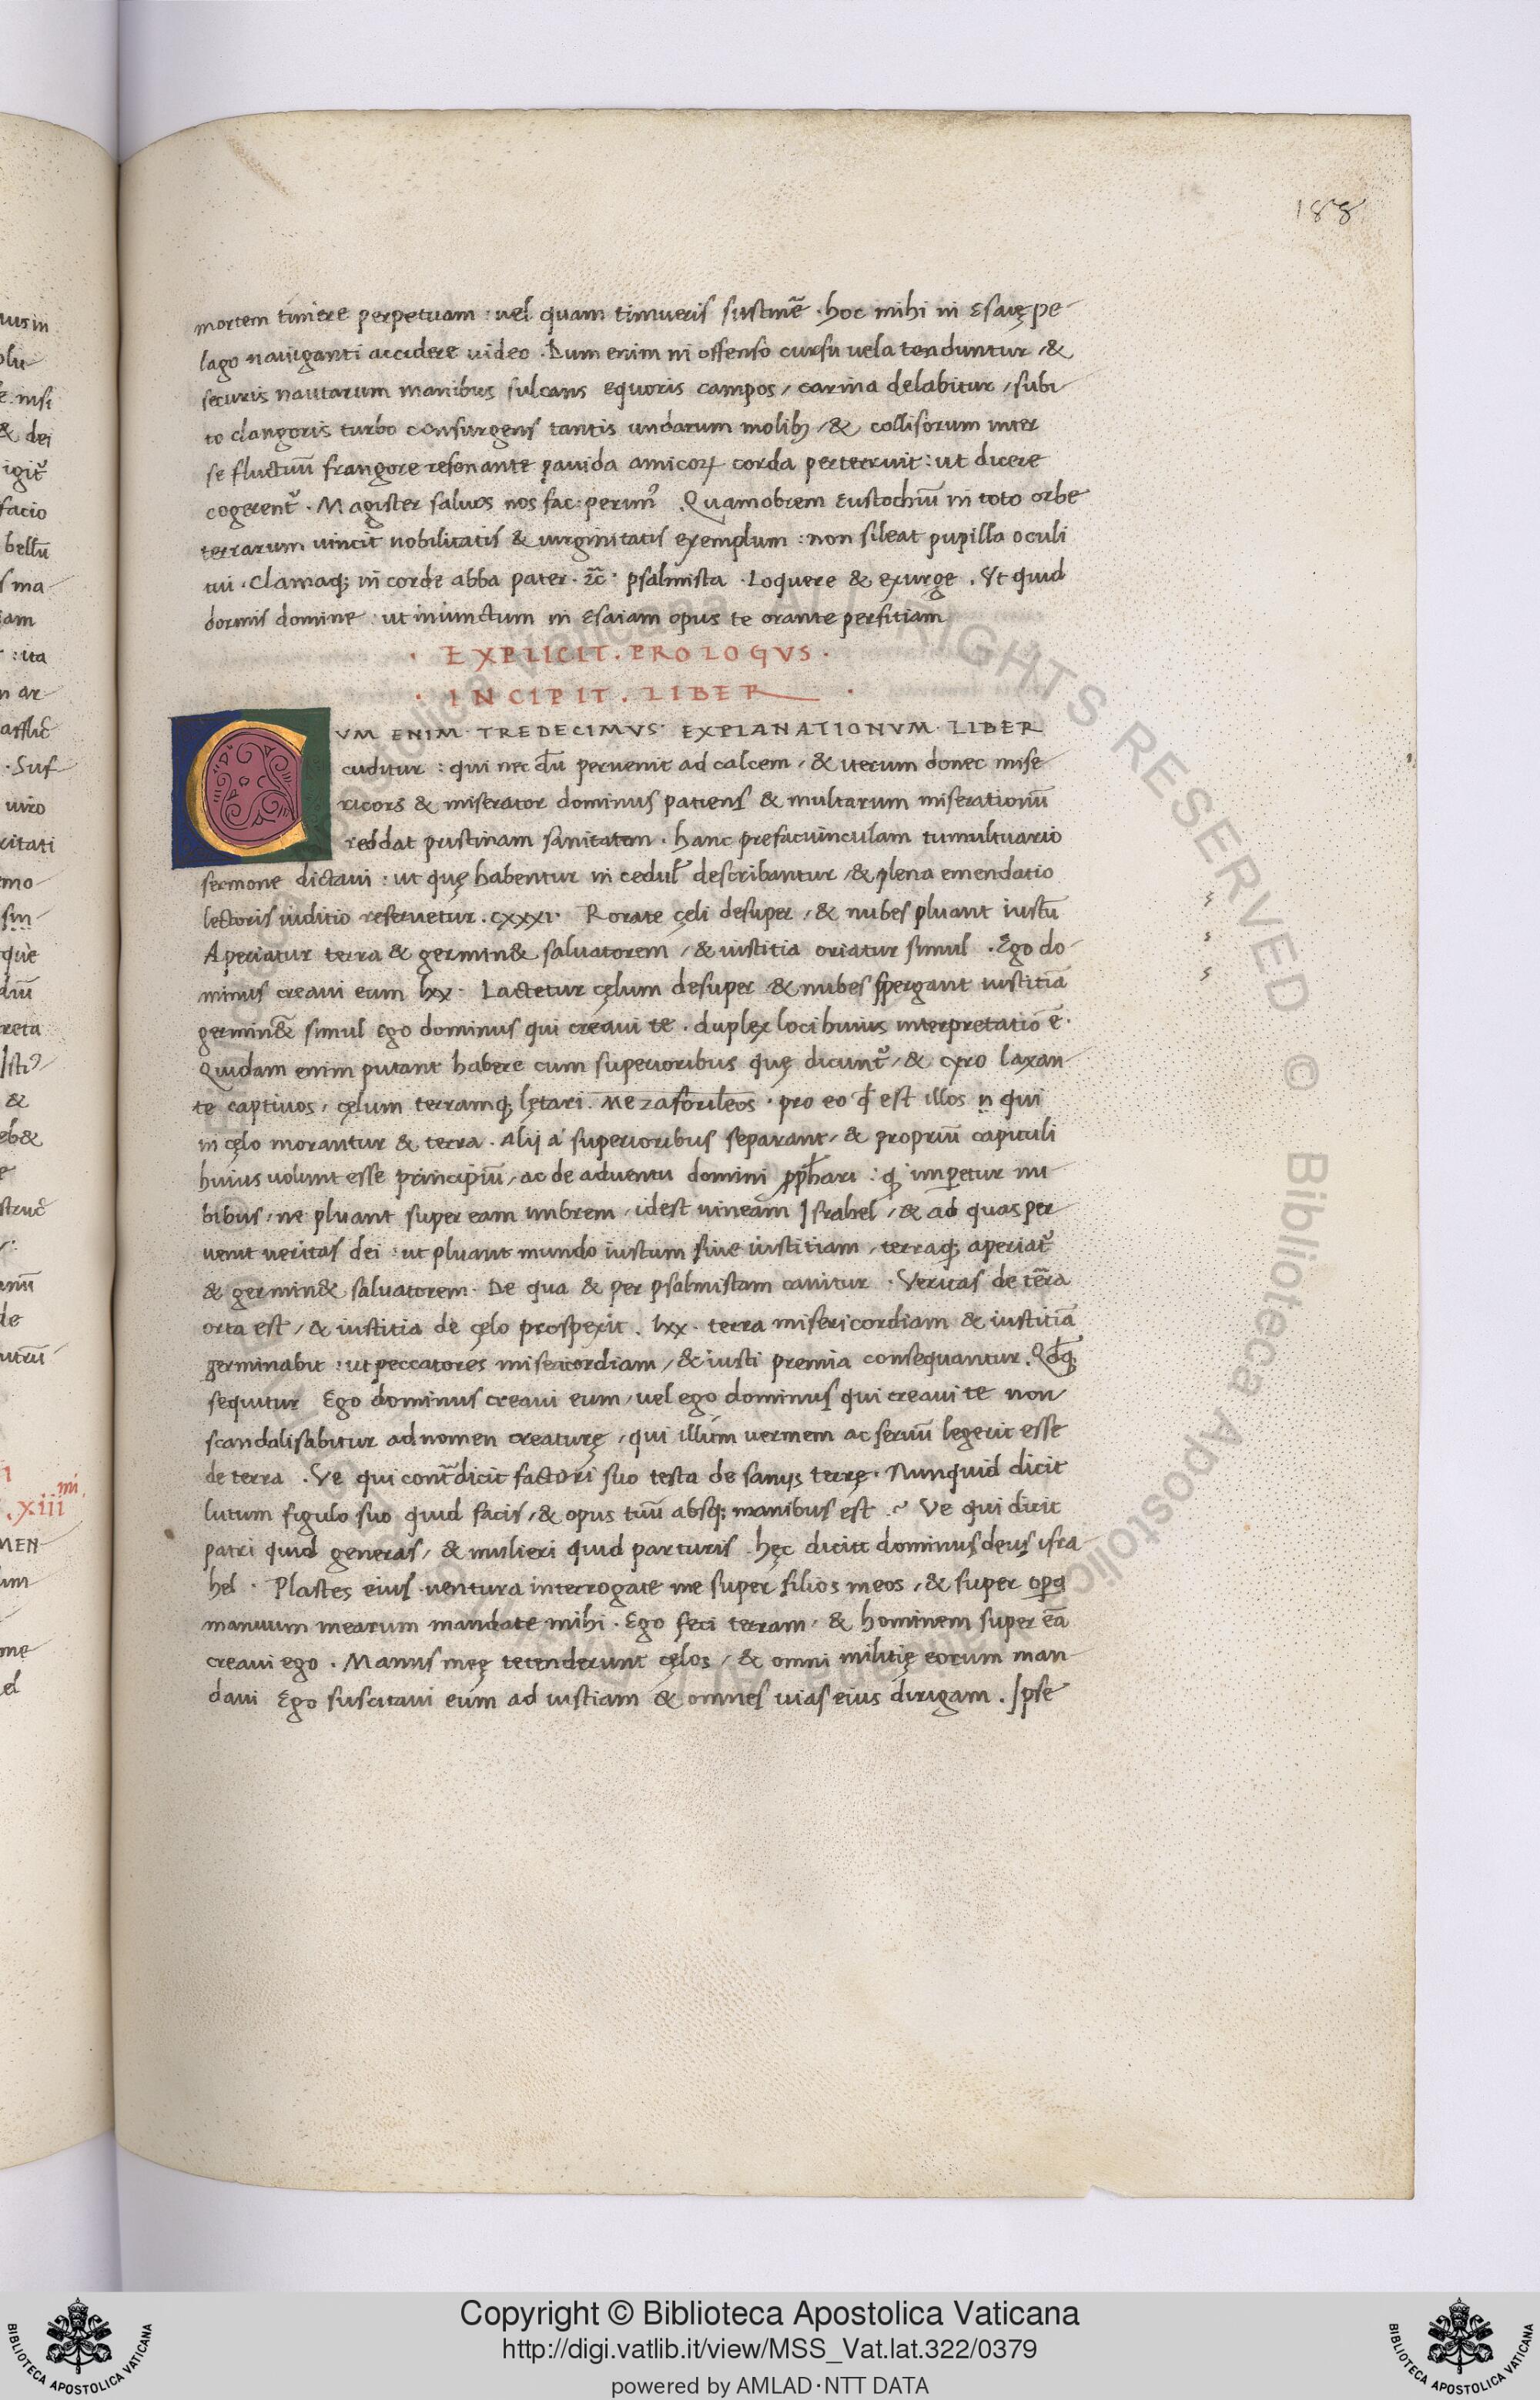 188
mortem timere perpetuam : uel quam timueris sustinē . hoc mihi in Esaię pe-
lago nauiganti accidere uideo . Dum enim in offenso cursu uela tenduntur , &
securis nautarum manibus sulcans equoris campos , carina delabitur , subi-
to clangoris turbo consurgens tantis undarum molibꝫ , & collisorum inter
se fluctuū frangore resonante pauida amicoꝝ corda perterruit : ut dicere
cogerent᷑ . Magister saluos nos fac : perim᷒ . Quamobrem Eustochiū in toto orbe
terrarum uincit nobilitatis & uirginitatis exemplum : non sileat pupilla oculi
tui . Clamaqꝫ in corde abba pater . &c̄ . psalmista . Loquere & exurge . Vt quid
dormis domine : ut iniunctum in Esaiam opus te orante perfitiam
. EXPLICIT . PROLOGVS .
. INCIPIT . LIBER .
CVM ENIM TREDECIMVS EXPLANATIONVM LIBER
cuditur : qui nec dū peruenit ad calcem , & iterum donec mise-
ricors & miserator dominus patiens & multarum miserationū
reddat pristinam sanitatem . hanc prefaciunculam tumultuario
sermone dictaui : ut quę habentur in cedul̄ describantur , & plena emendatio
lectoris iuditio reseruetur . cxxxi . Rorate cęli desuper , & nubes pluant iustū
Aperiatur terra & germin& saluatorem , & iustitia oriatur simul . Ego do-
minus creaui eum lxx . Lactetur cęlum desuper & nubes spergant iustitiā
germin& simul Ego dominus qui creaui te . duplex loci huius interpretatio ē .
Quidam enim putant habere cum superioribus quę dicunt᷑ , & cyro laxan-
te captiuos , cęlum terramqꝫ lętari . pro eo qđ est illos n̄ qui
in cęlo morantur & terra . Alij a superioribus separant , & propriū capituli
huius uolunt esse principiū , ac de aduentu domini ꝓph̄ari : q imperetur nu-
bibus , ne pluant super eam imbrem , idest uineam Israhel , & ad quas per-
uenit ueritas dei : ut pluant mundo iustum siue iustitiam , terraqꝫ aperiat᷑
& germin& saluatorem . De qua & per psalmistam canitur . Veritas de terra
orta est , & iustitia de cęlo prospexit . lxx . terra misericordiam & iustitiā
germinabit : ut peccatores misericordiam , & iusti premia consequantur . Qđqꝫ
sequitur Ego dominus creaui eum , uel ego dominus qui creaui te non
scandalisabitur ad nomen creaturę , qui illum uermem ac seruū legerit esse
de terra . Ve qui cont̄dicit factori suo testa de samijs terrę . Nunquid dicit
lutum figulo suo quid facis , & opus tuū absqꝫ manibus est . Ve qui dicit
patri quid generas , & mulieri quid parturis . hęc dicit dominus deus isra-
hel . Plastes eius uentura interrogate me super filios meos , & super
manuum mearum mandate mihi . Ego feci terram , & hominem super eā
creaui ego . Manus meę tetenderunt cęlos , & omni militię eorum man-
daui Ego suscitaui eum ad iustiam & omnes uias eius dirigam . Ipse
Copyright © Biblioteca Apostolica Vaticana
http://digi.vatlib.it/view/MSS_Vat.lat.322/0379
powered by AMLAD·NTT DATA
BIBLIOTECA APOSTOLICA VATICANA
BIBLIOTECA APOSTOLICA VATICANA